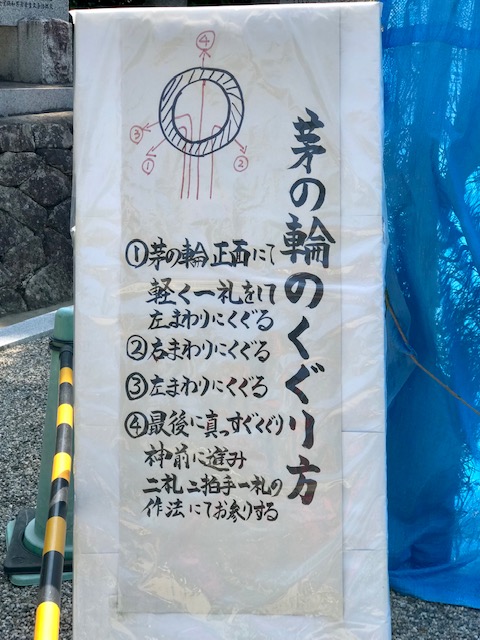 茅の輪のくぐり方
④
③
①
②
①茅の輪正面にて
軽く一礼をして
左まわりにくぐる
②右まわりにくぐる
③左まわりにくぐる
④最後に真っすぐくぐり
神前に進み
二礼二拍手一礼の
作法にてお参りする